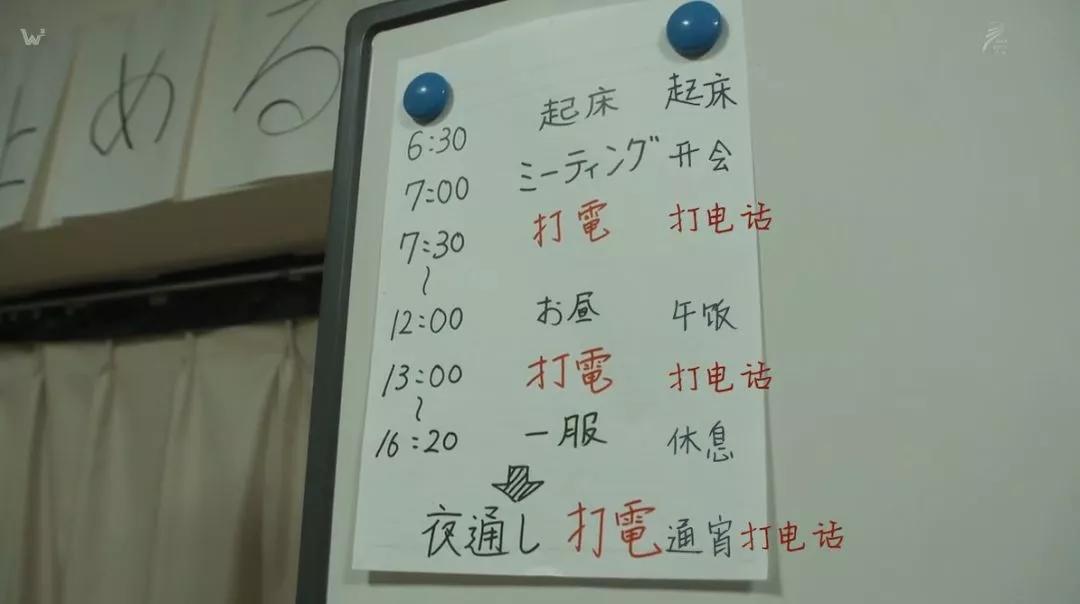 める
6:30 起床 起床
7:00 ミーティング 开会
7:30 打電 打电话
~
12:00 お昼 午饭
13:00 打電 打电话
~
16:20 一服 休息
夜通し 打電 通宵打电话